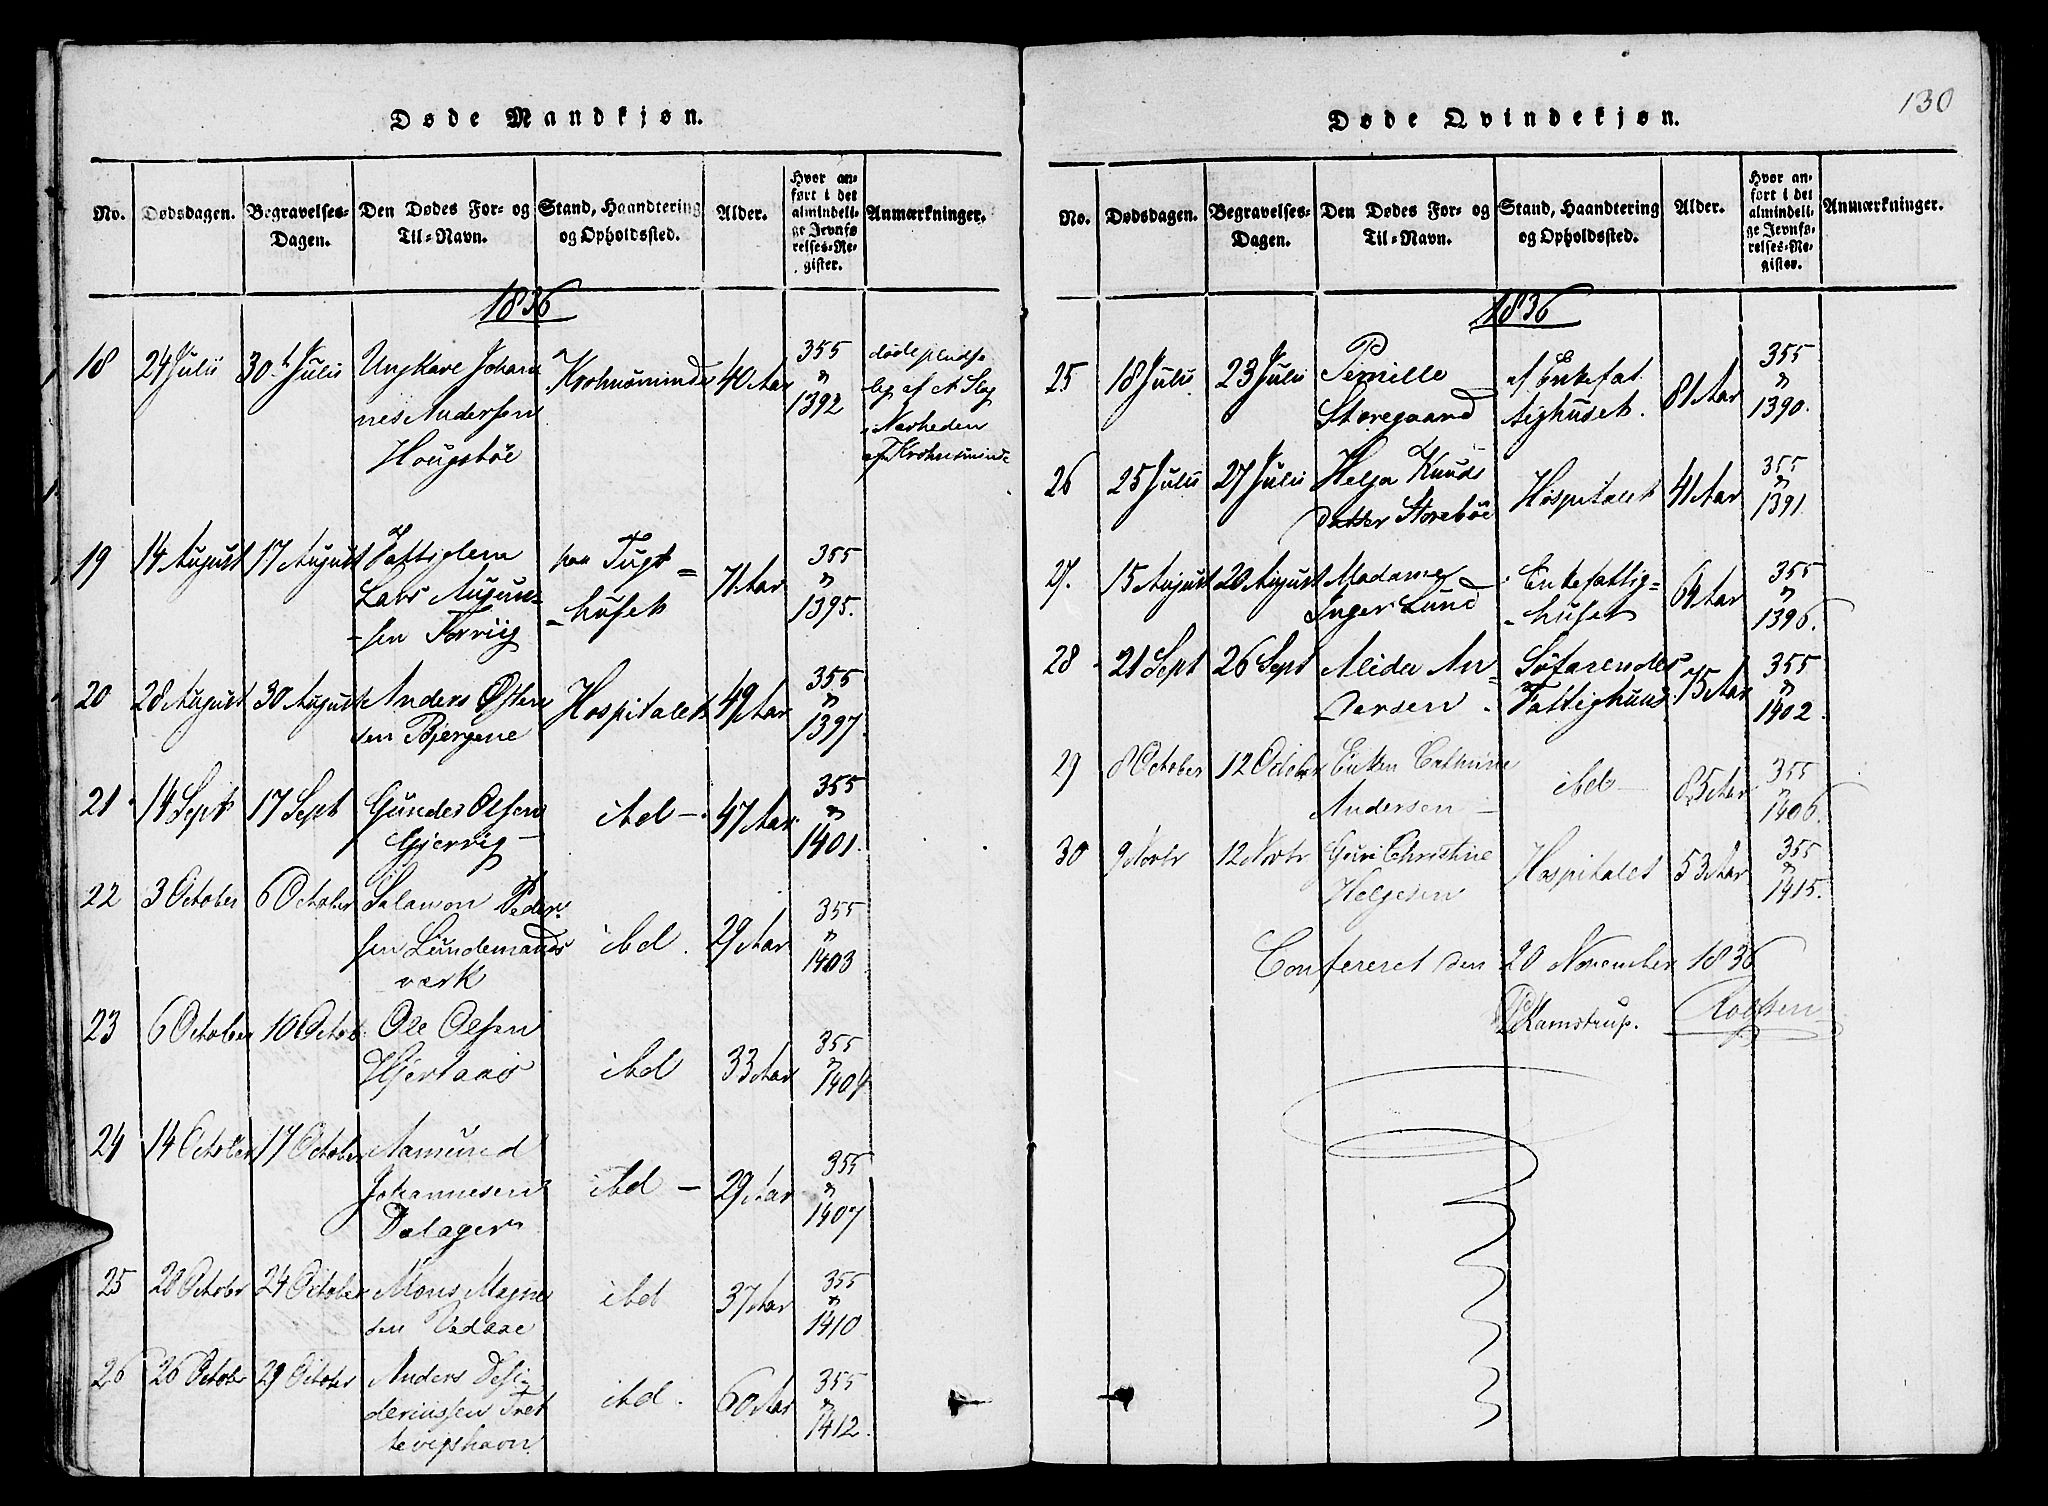 Døde Mandkjøn.
No.
Dødsdagen.
Begravelses-
Dagen.
Den Dødes For- og
Til-Navn.
Stand, Haandtering
og Opholdssted.
Alder.
Hvor an-
ført i det
almindeli-
ge Jevnfø-
relses-Re-
gister.
Anmærkninger.
1836
18 24 Julii 30 Julii Ungkarl Johan
nes Andersen
Hougstøe
Krohnsminde 40 Aar 355
"
1392
døde pludse
lig af et Slag
i Nærheden
af Krohnsminde
19 14 August 17 August Fattiglem
Lars Augun-
-sen Torviig
paa Tugt=
=huset
71 Aar 355
"
1395.
20 28 August 30 August Anders Østen
sen Bjergene
Hospitalet 49 Aar 355
"
1397.
21 14 Sept 17 Sept Gunder Olsen
Gjervig -
ibd - 47 Aar 355
"
1401.
22 3 October 6 October Salamon Peder-
sen Lundemands
værk
ibd. 29 Aar 355
"
1403
23 6 October 10 Octob. Ole Olsen
Hjertaas
ibd 33 Aar 355
"
1404
24 14 October 17 October Aamund
Johannesen
Dalager
ibd - 29 Aar 355
"
1407
25 20 Octobr 24 October Mons Magne
sen Vedaae
ibd 37 Aar 355
"
1410
26 26 Octobr 29 Octobr Anders Desi-
deriussen Tret
tevigshavn
ibd. 60 Aar 355
"
1412.
130
Døde Qvindekjøn.
No.
Dødsdagen.
Begravelses-
Dagen.
Den Dødes For- og
Til-Navn.
Stand, Haandtering
og Opholdssted.
Alder.
Hvor an-
ført i det
almindeli-
ge Jevnfø-
relses-Re-
gister.
Anmærkninger.
1836
25 18 Julii 23 Julii Pernille
Storegaard
af Enkefat
tighuset.
81 Aar 355
"
1390.
26 25 Julii 27 Julii Helga Knuds
datter Storebøe
Hospitalet 41 Aar 355
"
1391
27. 15 August 20 August Madame
Inger Lund
Enkefattig=
=huset
64 Aar 355
"
1396.
28 21 Sept 26 Sept Alida An=
dersen.
Søfarendes
Fattighuus
75 Aar 355
"
1402.
29 8 October 12 Octobr Enken Cathrine
Andersen -
ibd - 85 Aar 355
"
1406.
30 9 Novbr 12 Novbr Guri Christine
Helgesen
Hospitalet 53 Aar 355
"
1415.
Confereret den 20 November 1836
Kamstrup.